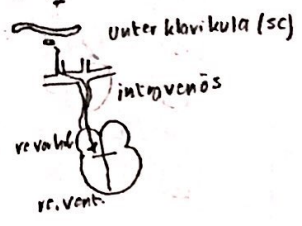 unter klavikula (sc)
intravenös
re vorhof
re. vent.